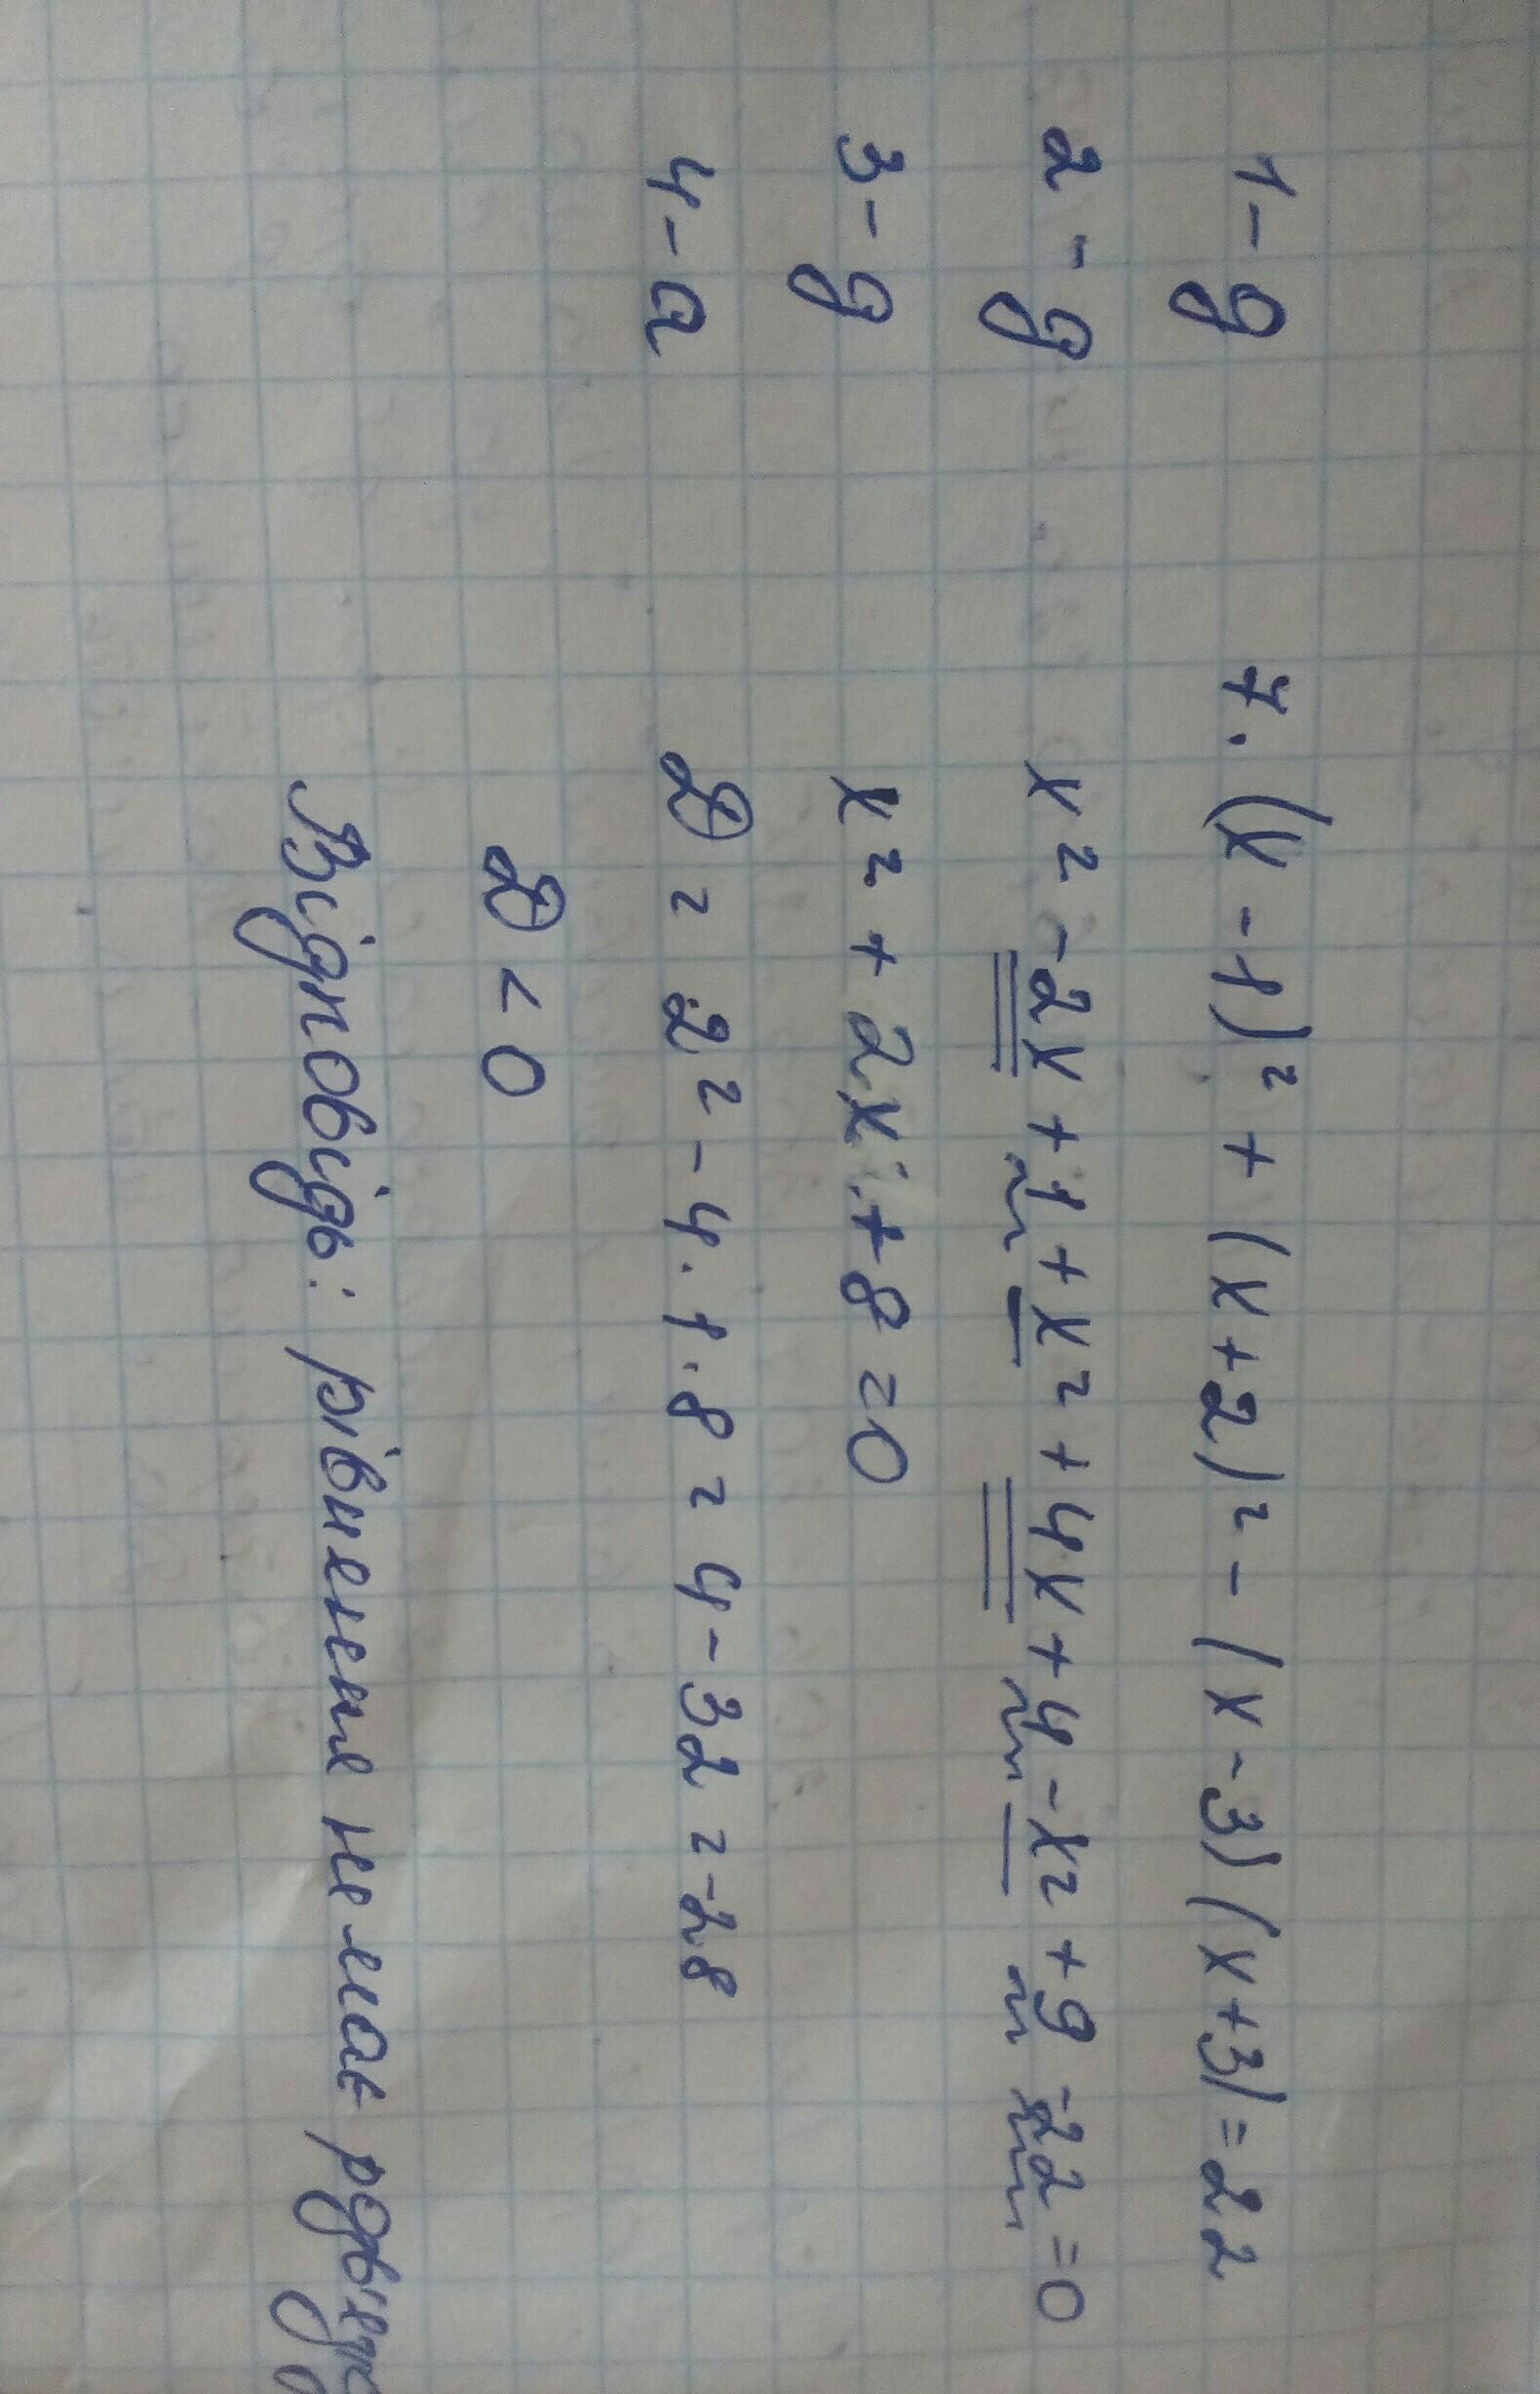 1 - д
2 - д
3 - д
4 - а
7. (x - 1)² + (x + 2)² - (x - 3)(x + 3) = 22
x² - 2x + 1 + x² + 4x + 4 - x² + 9 - 22 = 0
x² + 2x + 8 = 0
D = 2² - 4 · 1 · 8 = 4 - 32 = -28
D < 0
Відповідь: рівнення не має